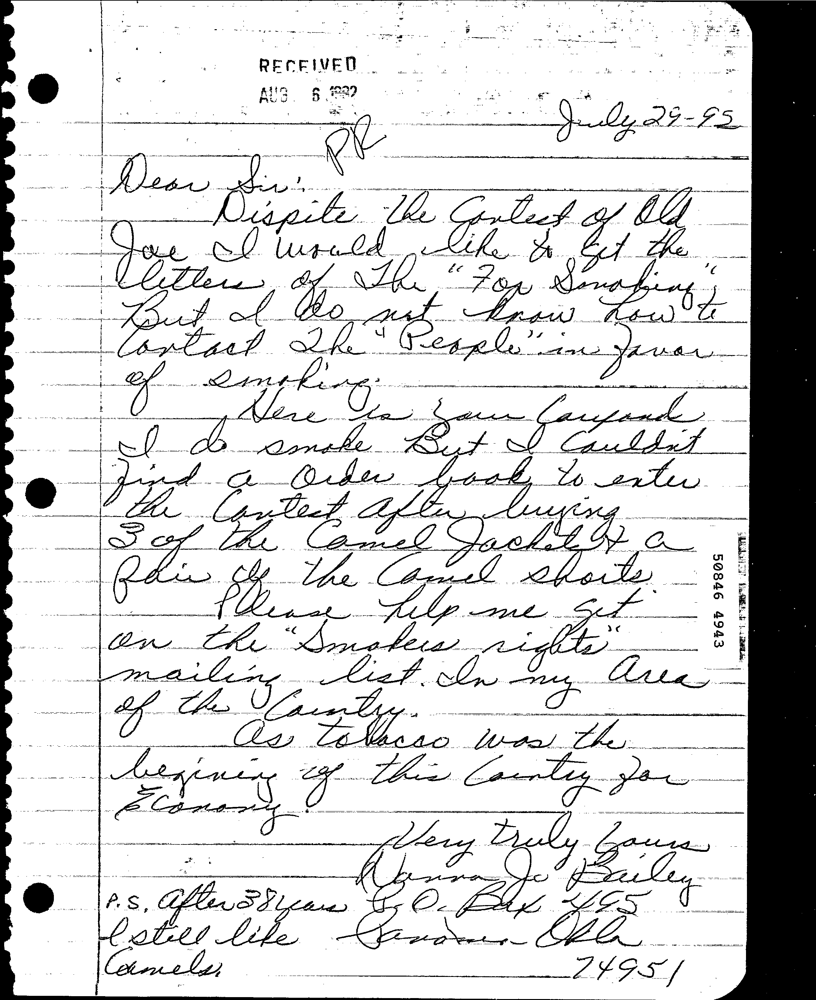 RECEIVED
AUG 6 1992
July 29-92
PR
Dear Sir:
Dispite the Contest of Old
Joe I would like to get the
letters of The "For Smoking";
But I do not know how to
Contact The "People" in favor
of smoking.
Here is your
I do smoke But I Couldn't
find a Order book to enter
the Contest after buying
3 of the Camel Jackets & a
Pair of the Camel shorts.
Please help me get
on the "Smokers rights"
mailing list. In my Area
of the Country.
As tobacco was the
begining of this Country for
Economy.
Very truly Yours
Jo Bailey
P.S. After 38 years P.O. Box 495
I still like Okla
Camels. 74951
50846 4943